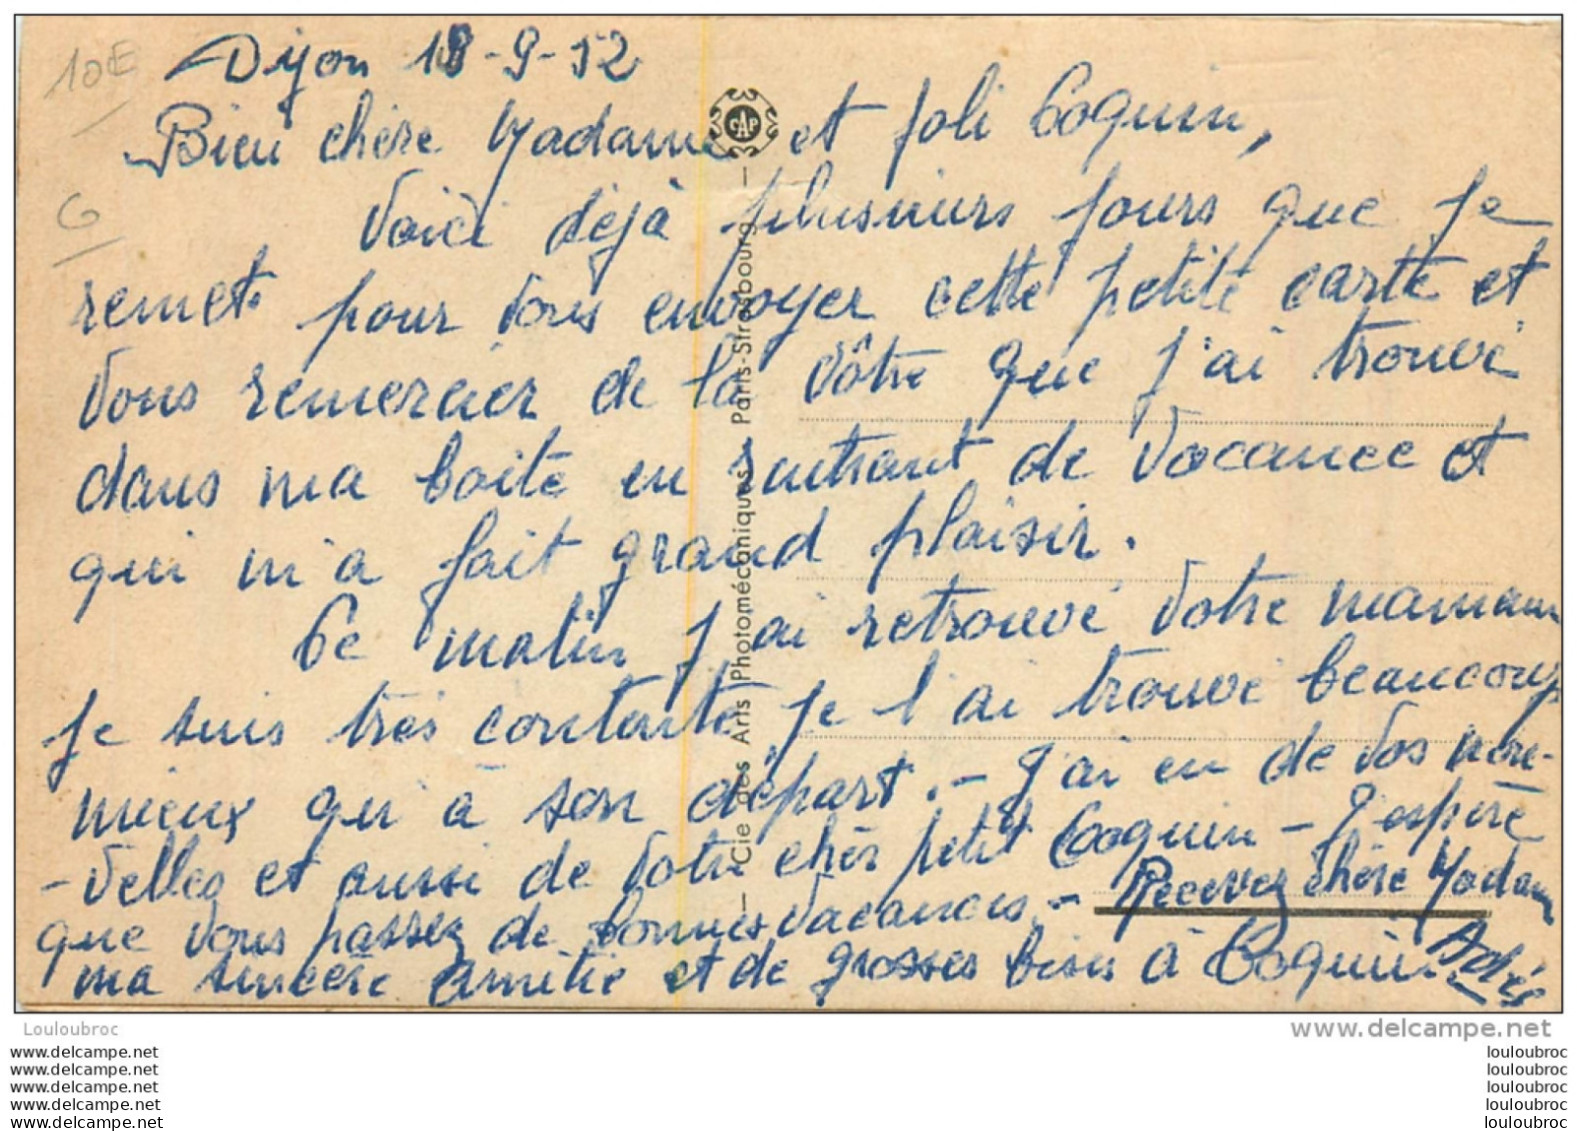 10E
Dijon 18-9-52
Bien chère Madame et joli Coquin,
G
Voici déjà plusieurs jours que je
remet pour vous envoyer cette petite carte et
vous remercier de la vôtre que j'ai trouvé
dans ma boite en rentrant de vacance et
qui m'a fait grand plaisir.
Ce matin j'ai retrouvé votre maman
je suis très contente je l'ai trouvé beaucoup
mieux qu'à son départ. - J'ai eu de vos nou-
-velles et aussi de votre cher petit Coquin - J'espère
que vous passez de bonnes vacances. - Recevez chère Madame
ma sincère amitié et de grosses bises à Coquin
CAP
— Cie des Arts Photomécaniques — Paris-Strasbourg —
Louloubroc
www.delcampe.net
www.delcampe.net
www.delcampe.net
www.delcampe.net
www.delcampe.net
www.delcampe.net
louloubroc
louloubroc
louloubroc
louloubroc
louloubroc